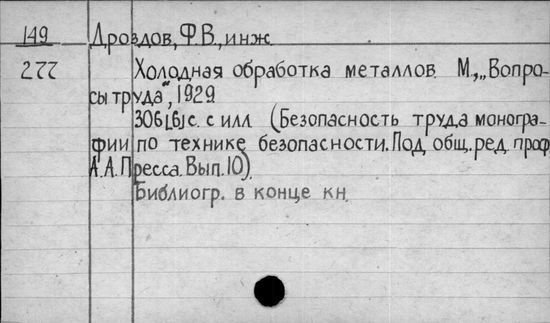 149 Дроздов, Ф.В., инж.
277 Холодная обработка металлов. М., „Вопро-
сы труда“, 1929
306[6]с. с илл (Безопасность труда моногра-
фии по технике безопасности. Под общ. ред. проф
А.А. Пресса. Вып. 10).
Библиогр. в конце кн.